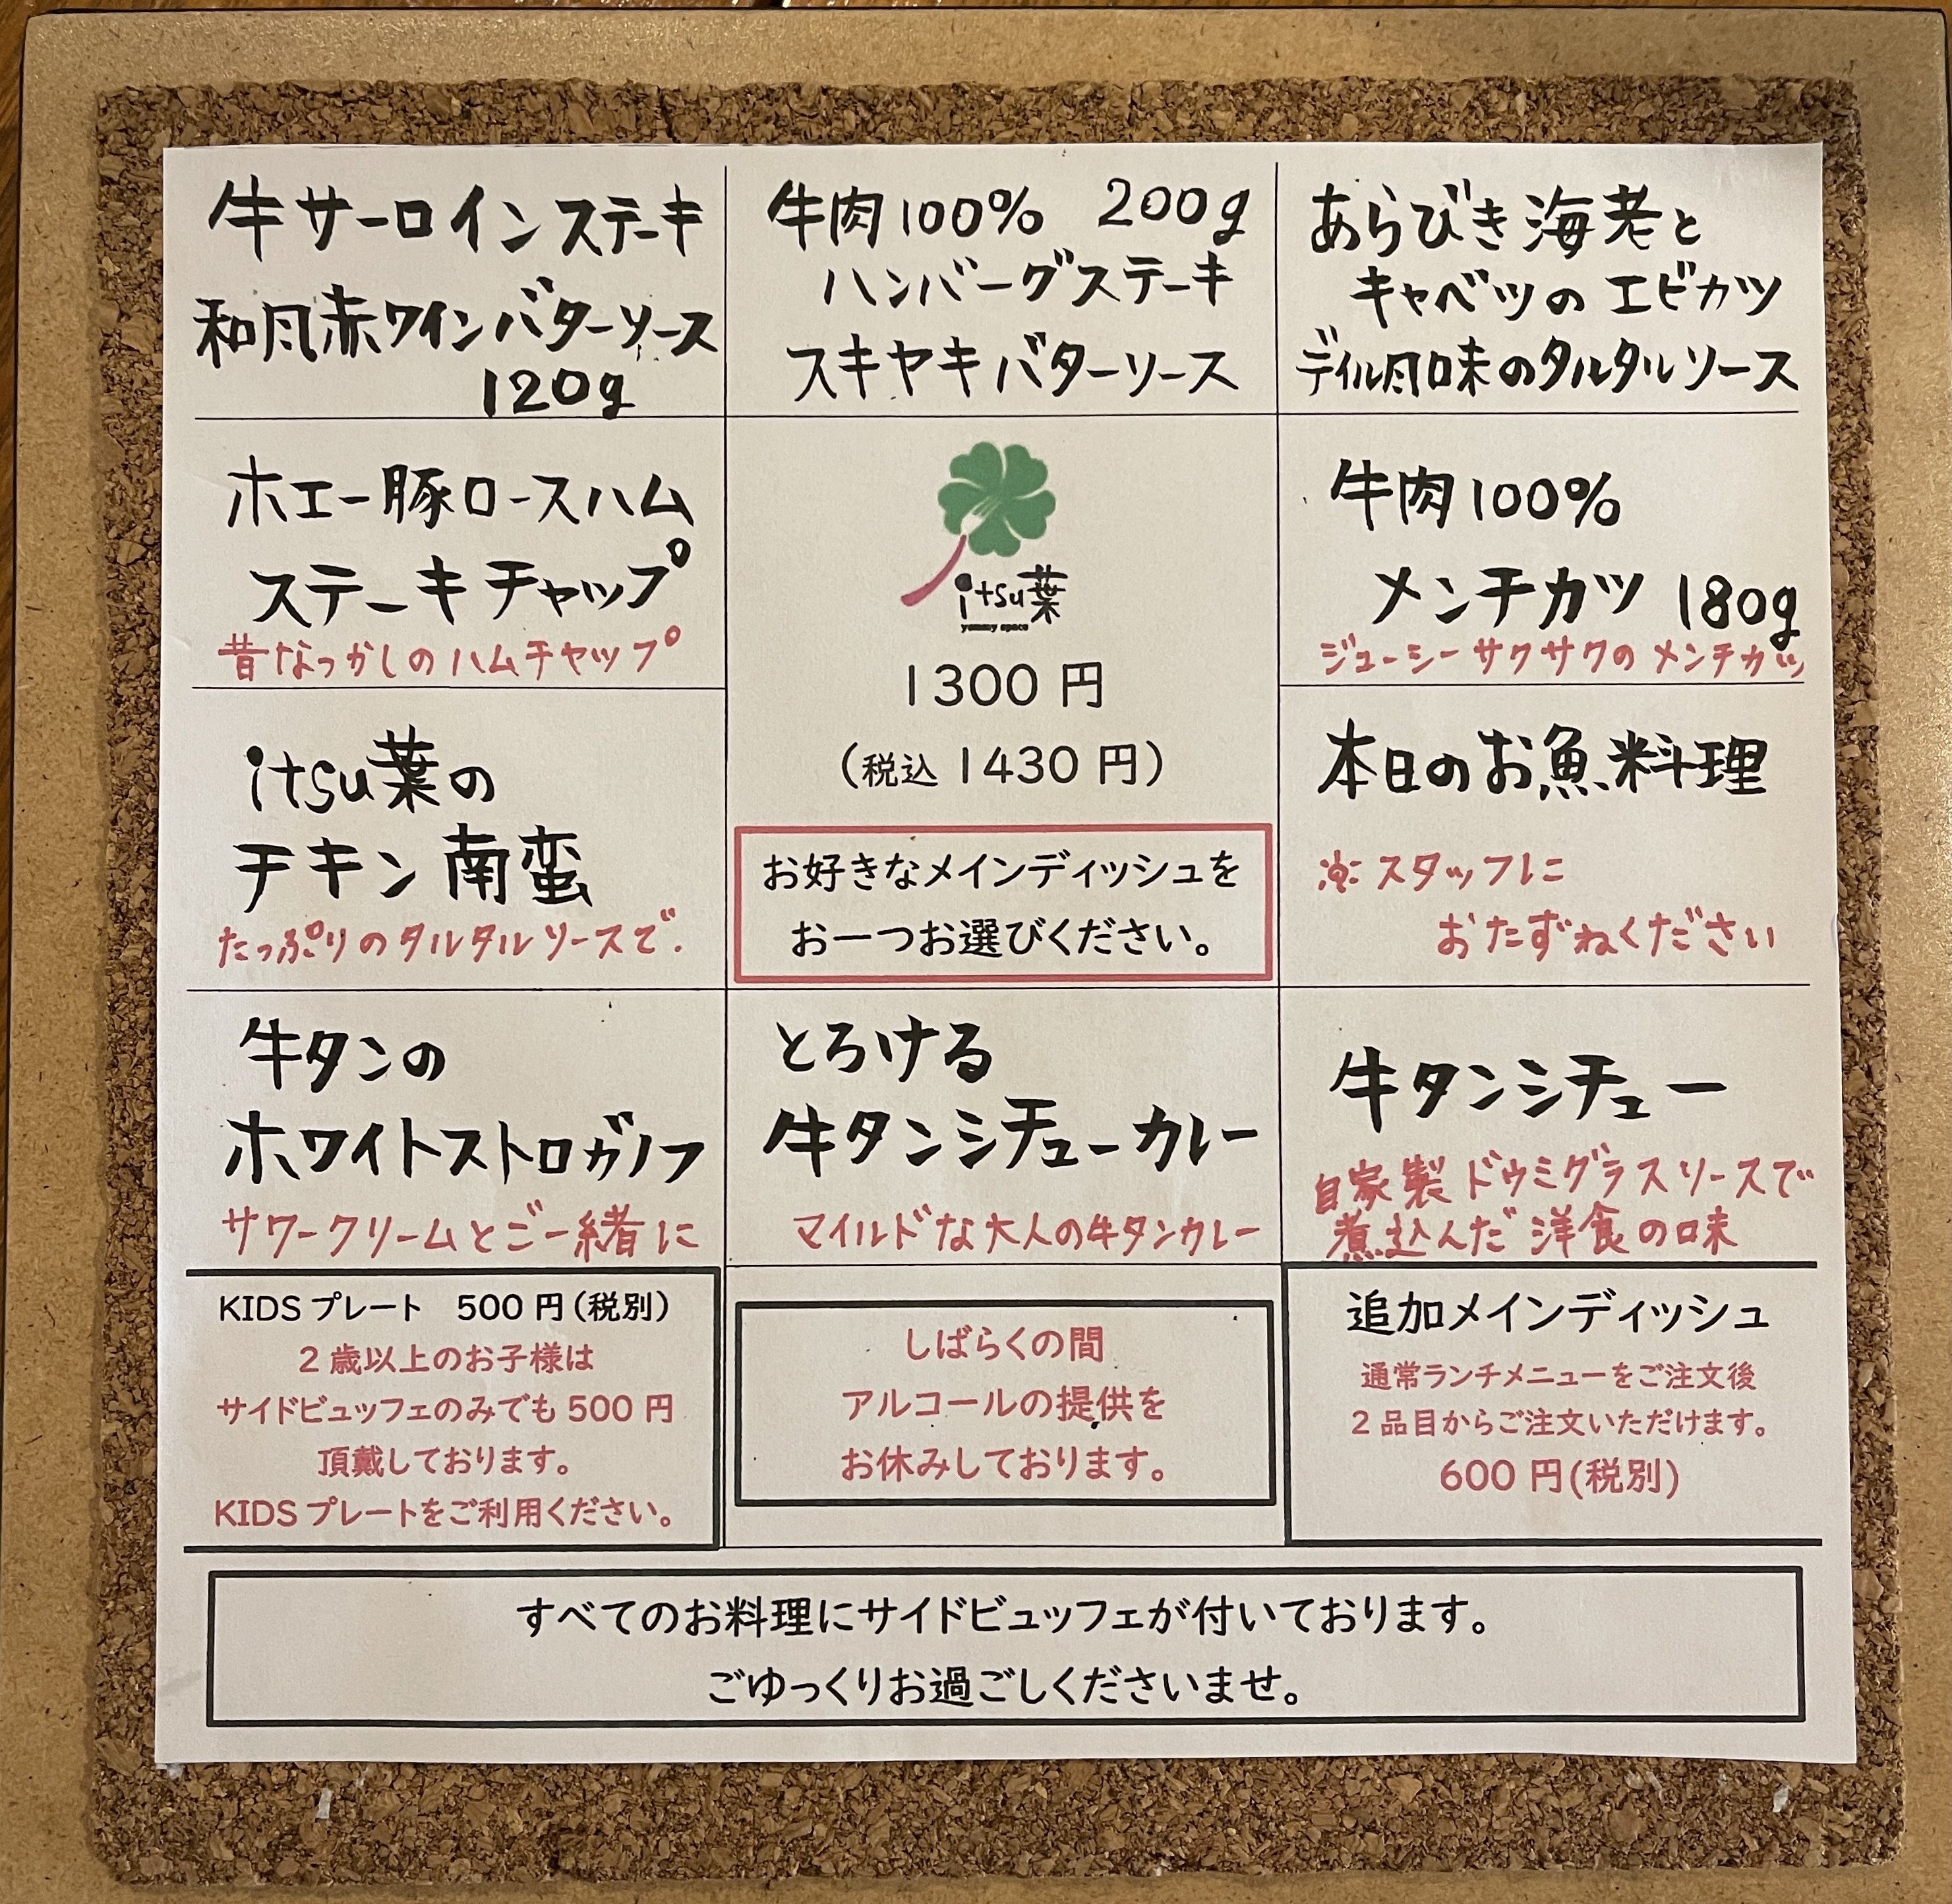 牛サーロインステーキ
和風赤ワインバターソース
120g
牛肉100% 200g
ハンバーグステーキ
スキヤキバターソース
あらびき海老と
キャベツのエビカツ
ディル風味のタルタルソース
ホエー豚ロースハム
ステーキチャップ
昔なつかしのハムチャップ
itsu葉
yummy space
1300円
(税込1430円)
お好きなメインディッシュを
お一つお選びください。
牛肉100%
メンチカツ 180g
ジューシーサクサクのメンチカツ
itsu葉の
チキン南蛮
たっぷりのタルタルソースで.
本日のお魚料理
※スタッフに
おたずねください
牛タンの
ホワイトストロガノフ
サワークリームとご一緒に
とろける
牛タンシチューカレー
マイルドな大人の牛タンカレー
牛タンシチュー
自家製ドゥミグラスソースで
煮込んだ洋食の味
KIDSプレート 500円(税別)
2歳以上のお子様は
サイドビュッフェのみでも500円
頂戴しております。
KIDSプレートをご利用ください。
しばらくの間
アルコールの提供を
お休みしております。
追加メインディッシュ
通常ランチメニューをご注文後
2品目からご注文いただけます。
600円(税別)
すべてのお料理にサイドビュッフェが付いております。
ごゆっくりお過ごしくださいませ。